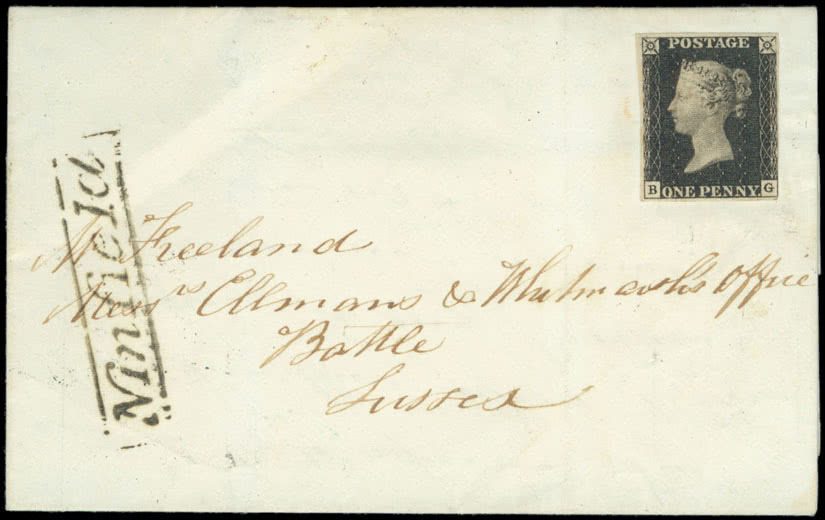 POSTAGE
B ONE PENNY. G
Ninfield
Mr Freeland
Messrs Ellmans & Whitmarsh's Office
Battle
Sussex